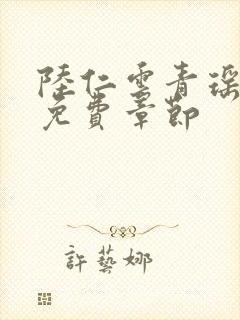 陸仁雲青瑶
免費章節
許藝娜